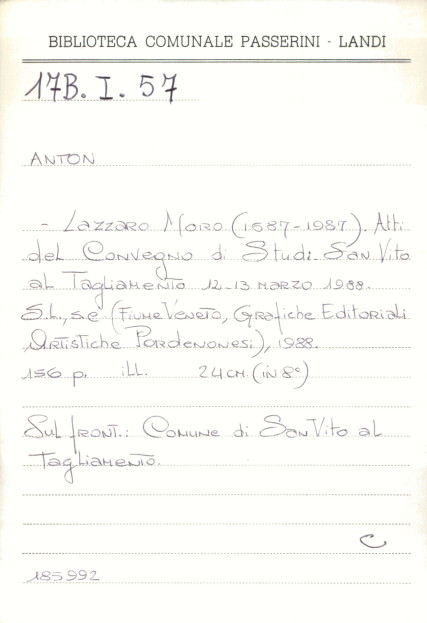 BIBLIOTECA COMUNALE PASSERINI - LANDI
17B. I. 57
ANTON
- Lazzaro Moro (1687-1987). Atti
del Convegno di Studi. San Vito
al Tagliamento 12-13 marzo 1988.
S.l., s.e (Fiume Veneto, Grafiche Editoriali
Artistiche Pordenonesi), 1988.
156 p. ill. 24 cm. (in 8°)
Sul front.: Comune di San Vito al
Tagliamento.
C
185992